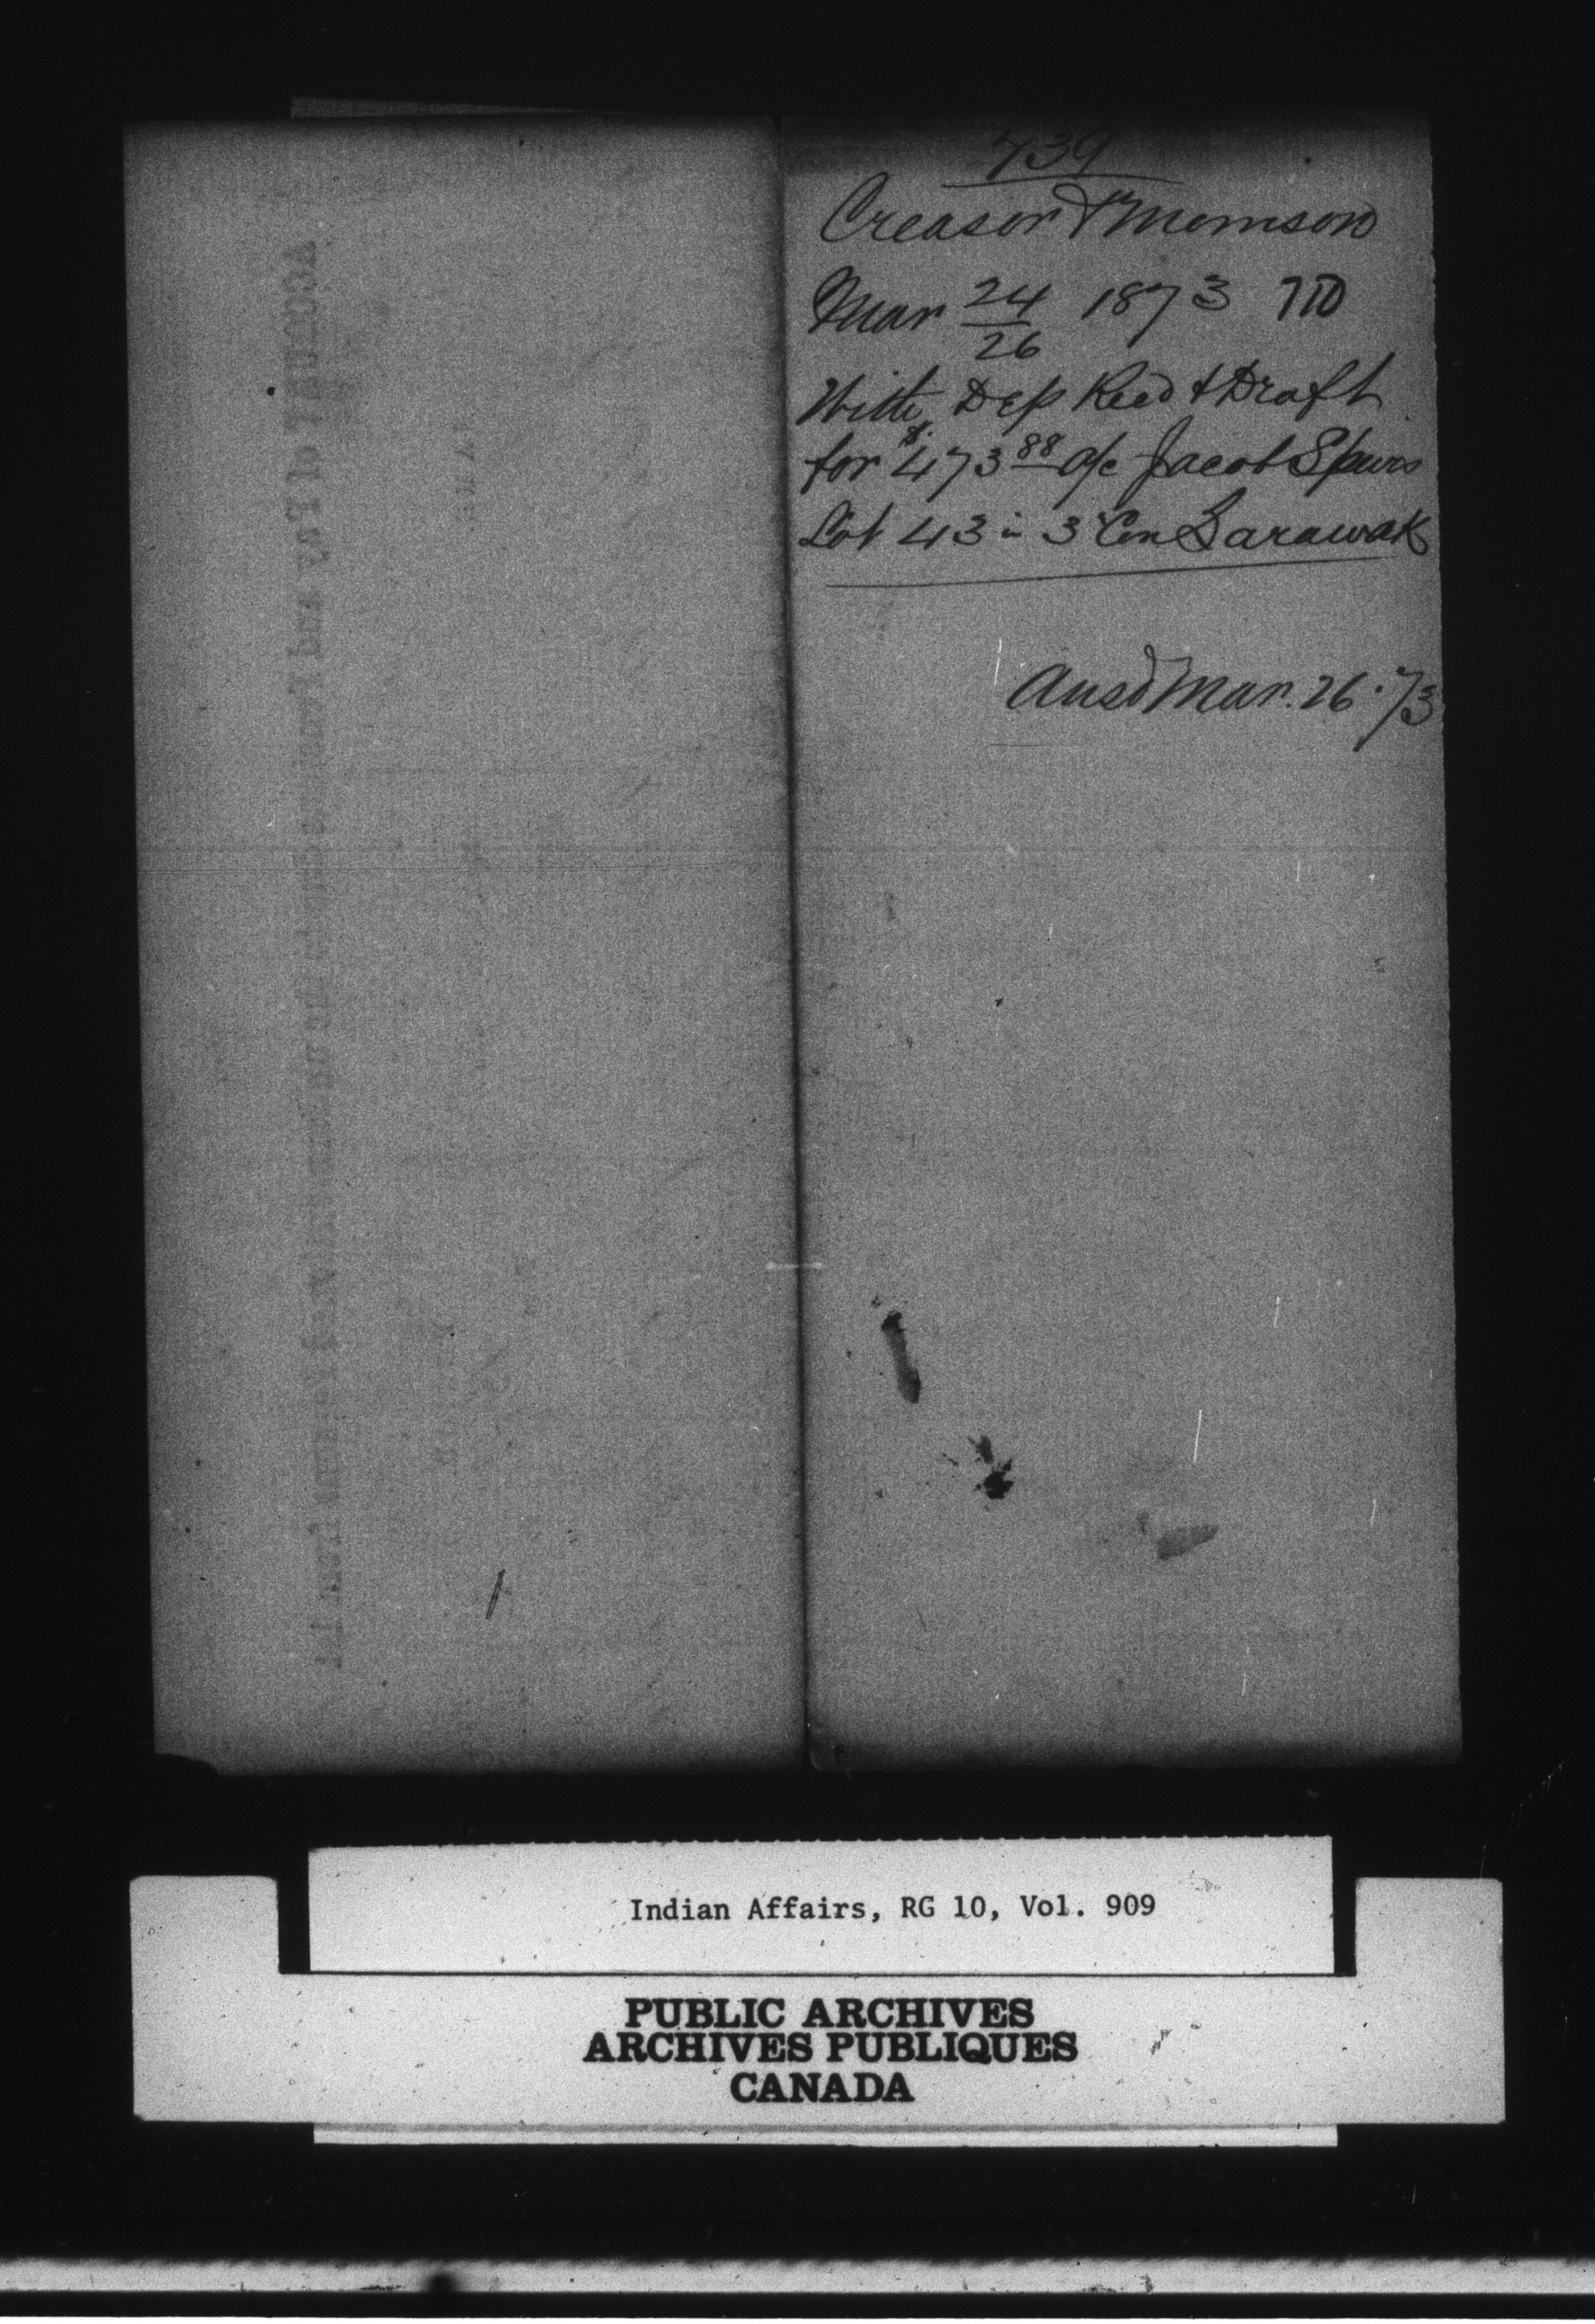 739
Creasor & Morrison
Mar 24/26 1873 710
With Dep Recd & Draft
for $473 88 a/c Jacob Spurs
Lot 43 in 3 Con Sarawak
Ansd Mar. 26. 73
Indian Affairs, RG 10, Vol. 909
PUBLIC ARCHIVES
ARCHIVES PUBLIQUES
CANADA